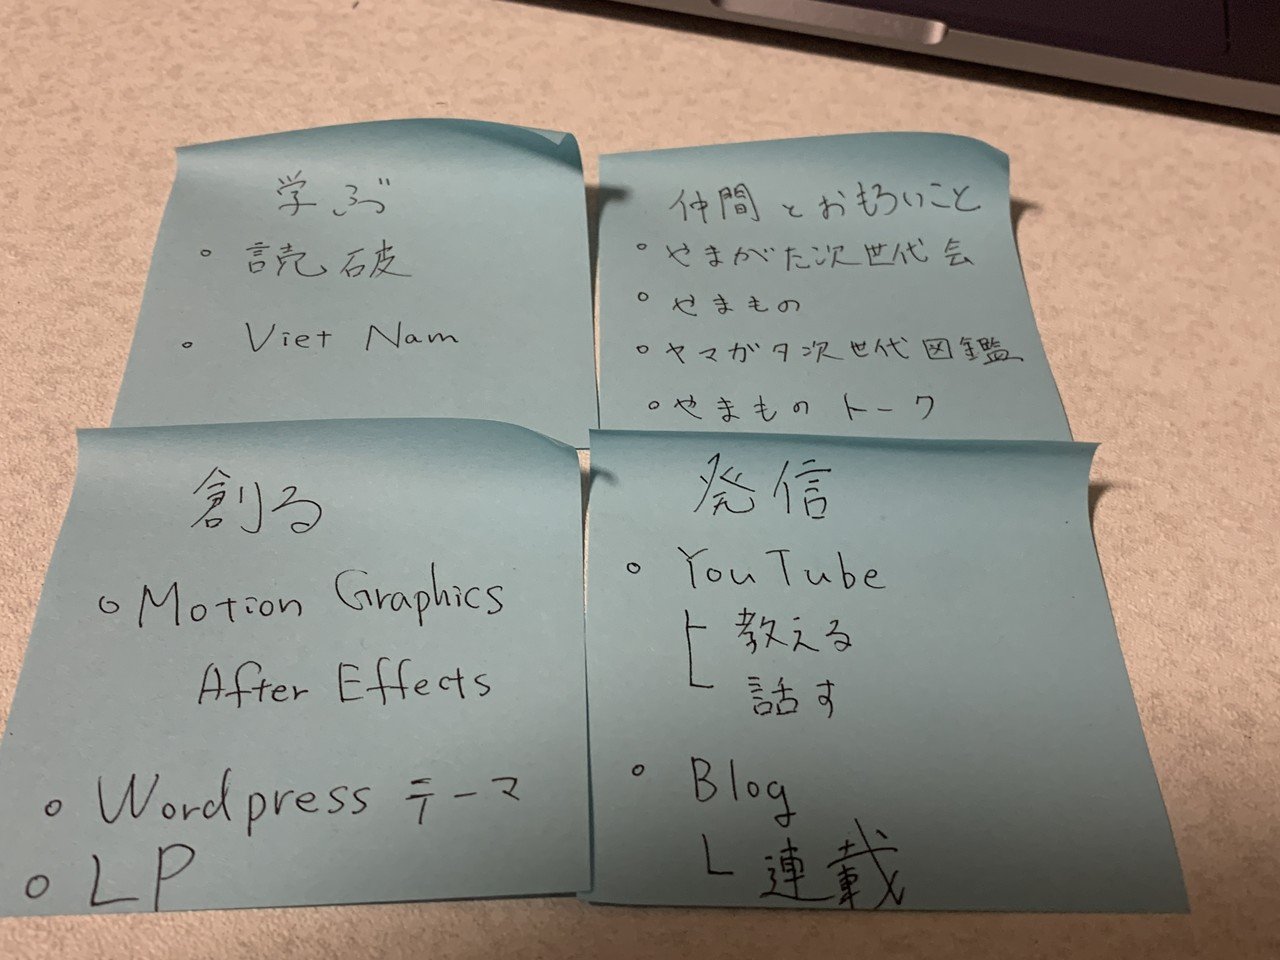 学ぶ
◦ 読破
◦ Viet Nam
仲間とおもろいこと
◦ やまがた次世代会
◦ やまもの
◦ ヤマガタ次世代図鑑
◦ やまものトーク
創る
◦ Motion Graphics
After Effects
◦ Wordpress テーマ
◦ LP
発信
◦ YouTube
├ 教える
└ 話す
◦ Blog
└ 連載